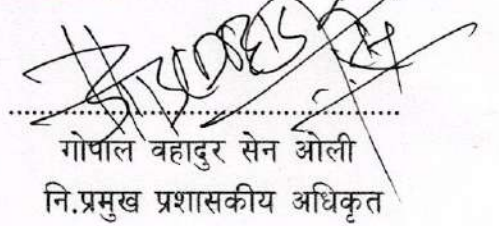 गोपाल वहादुर सेन ओली
नि.प्रमुख प्रशासकीय अधिकृत